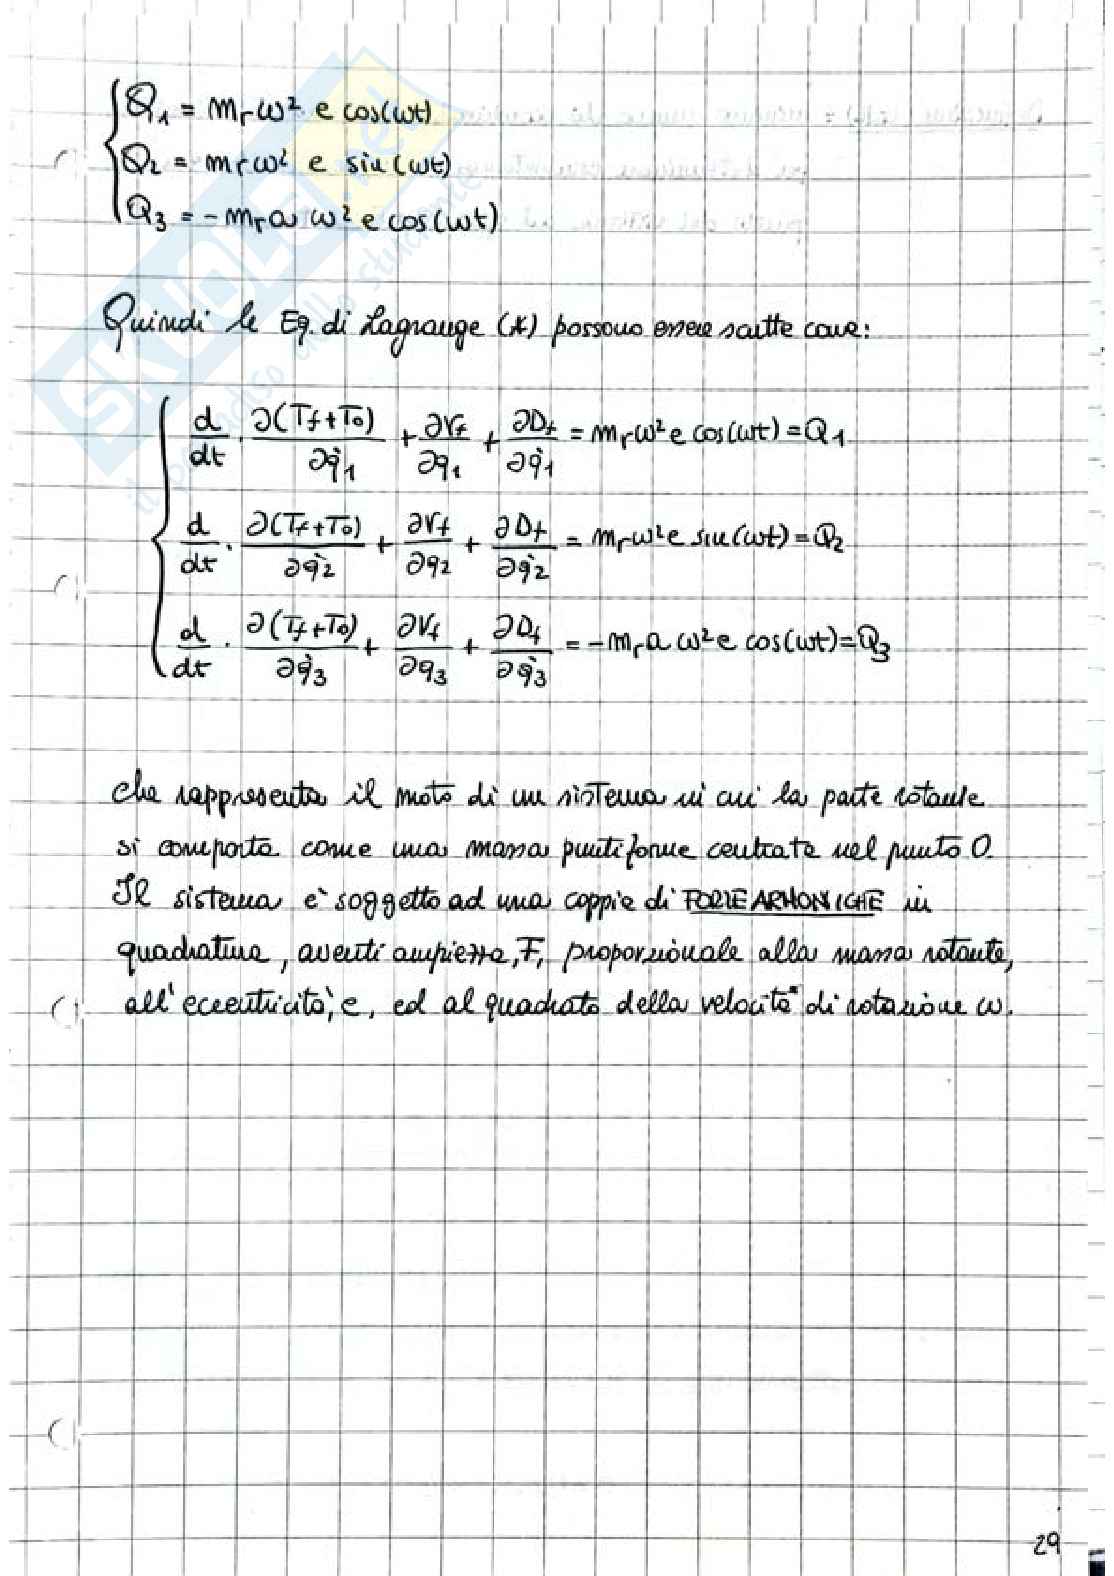 Q1 = mrω² e cos(ωt)
Q2 = mrω² e sin(ωt)
Q3 = -mr a ω² e cos(ωt)
Quindi le Eq. di Lagrange (*) possono essere scritte come:
d/dt · ∂(Tf+To)/∂q̇1 + ∂Vf/∂q1 + ∂Df/∂q̇1 = mrω² e cos(ωt) = Q1
d/dt · ∂(Tf+To)/∂q̇2 + ∂Vf/∂q2 + ∂Df/∂q̇2 = mrω² e sin(ωt) = Q2
d/dt · ∂(Tf+To)/∂q̇3 + ∂Vf/∂q3 + ∂Df/∂q̇3 = -mr a ω² e cos(ωt) = Q3
che rappresenta il moto di un sistema in cui la parte rotante
si comporta come una massa puntiforme centrata nel punto O.
Il sistema è soggetto ad una coppia di FORZE ARMONICHE in
quadratura, aventi ampiezza, F, proporzionale alla massa rotante,
all'eccentricità, e, ed al quadrato della velocità di rotazione ω.
29
SKUOLA.net
il paradiso dello studente